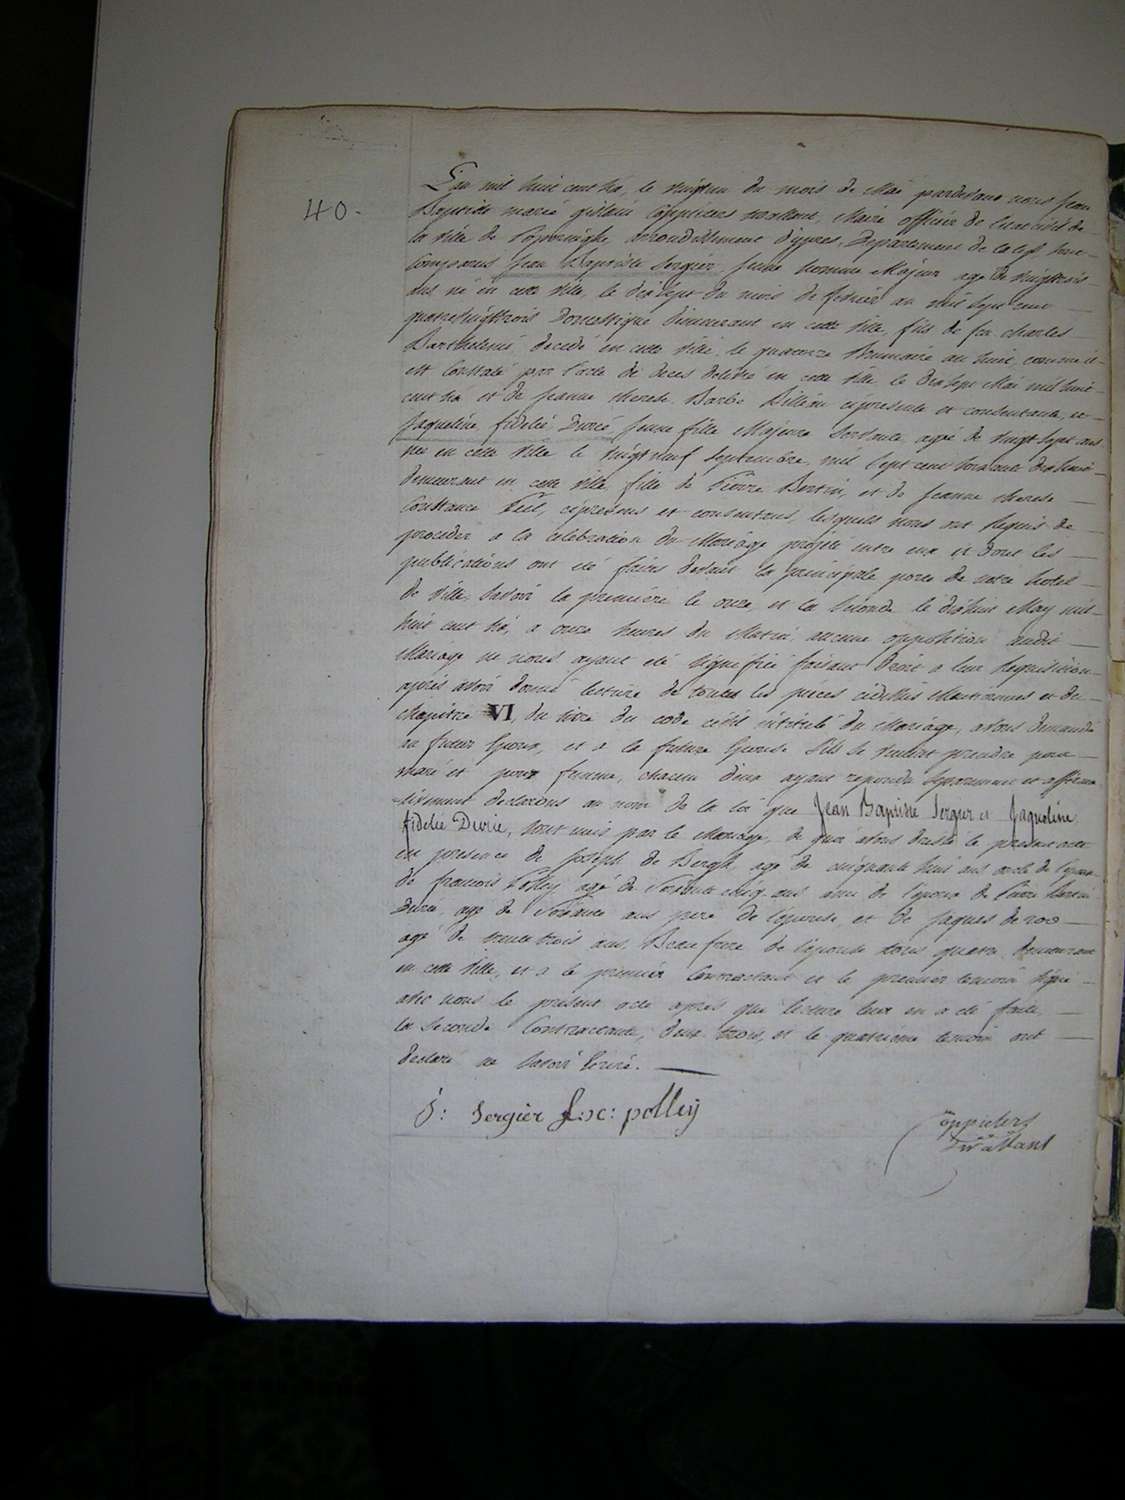 40.
L'an mil huit cent dix, le vingtun du mois de Mai pardevant nous Jean
Baptiste marie gislain Coppieters travallant, Maire officier de l'état civil de
la ville de Poperinghe, arrondissement d'ypres, Departement de la Lys sont
Comparus Jean Baptiste Sergier, jeune homme Majeur agé de vingtsept
ans né en cette ville, le dixsept du mois de fevrier an mil sept cent
quatrevingttrois Domestique demeurant en cette ville, fils de feu charles
Barthelemi, decedé en cette ville le quatorze Brumaire an huit, comme il
est Constaté par l'acte de deces delivré en cette ville le dixsept Mai mil huit
cent dix et de Jeanne therese Barbe cipresente et consentante, et
Jaqueline fidelié Durié jeune fille Majeure agé de vingt sept ans
née en cette ville le vingt neuf Septembre, mil sept cent
demeurant en cette ville, fille de Pierre Bertin, et de Jeanne therese
Constance cipresens et consentans, lesquels nous ont Requis de
proceder a la celebration du Mariage projeté entre eux et dont les
publications ont été faites devant la principale porte de notre hotel
de ville, Savoir la premiere le onze, et la Seconde le dixhuit May mil
huit cent dix, a onze heures du Matin, aucune opposition audit
Mariage ne nous ayant été signifiée faisant droit a leur Requisition
après avoir donné lecture de toutes les pièces cidessus Mentionnees et du
chapitre VI, du titre du code civil intitulé du Mariage, avons demandé
au futur Epoux, et a la future Epouse S'ils se veulent prendre pour
mari et pour femme, chacun d'eux ayant repondu Separement et affirma
-tivement declarons au nom de la loi que Jean Baptiste Sergier et Jaqueline
fidelié Durié, sont unis par le Mariage, de quoi avons dressé le present acte
en presence de Joseph de Bergh, agé de cinquante huit ans oncle de l'epoux
de francois Polley agé de Soixante cinq ans ami de l'epoux de Pierre Bertin
Durié, agé de Soixante ans pere de l'épouse, et de Jaques de roo
agé de trente trois ans Beaufrere de l'epouse tous quatre demeurant
en cette ville, et a le premier Contractant et le premier temoin signé
avec nous le présent acte après que lecture leur en a été faite,
la Seconde Contractante, deux trois, et le quatrieme temoin ont
declaré ne Savoir Ecrire.
J: Sergier f:c: polleÿ
Coppieters
Travallant